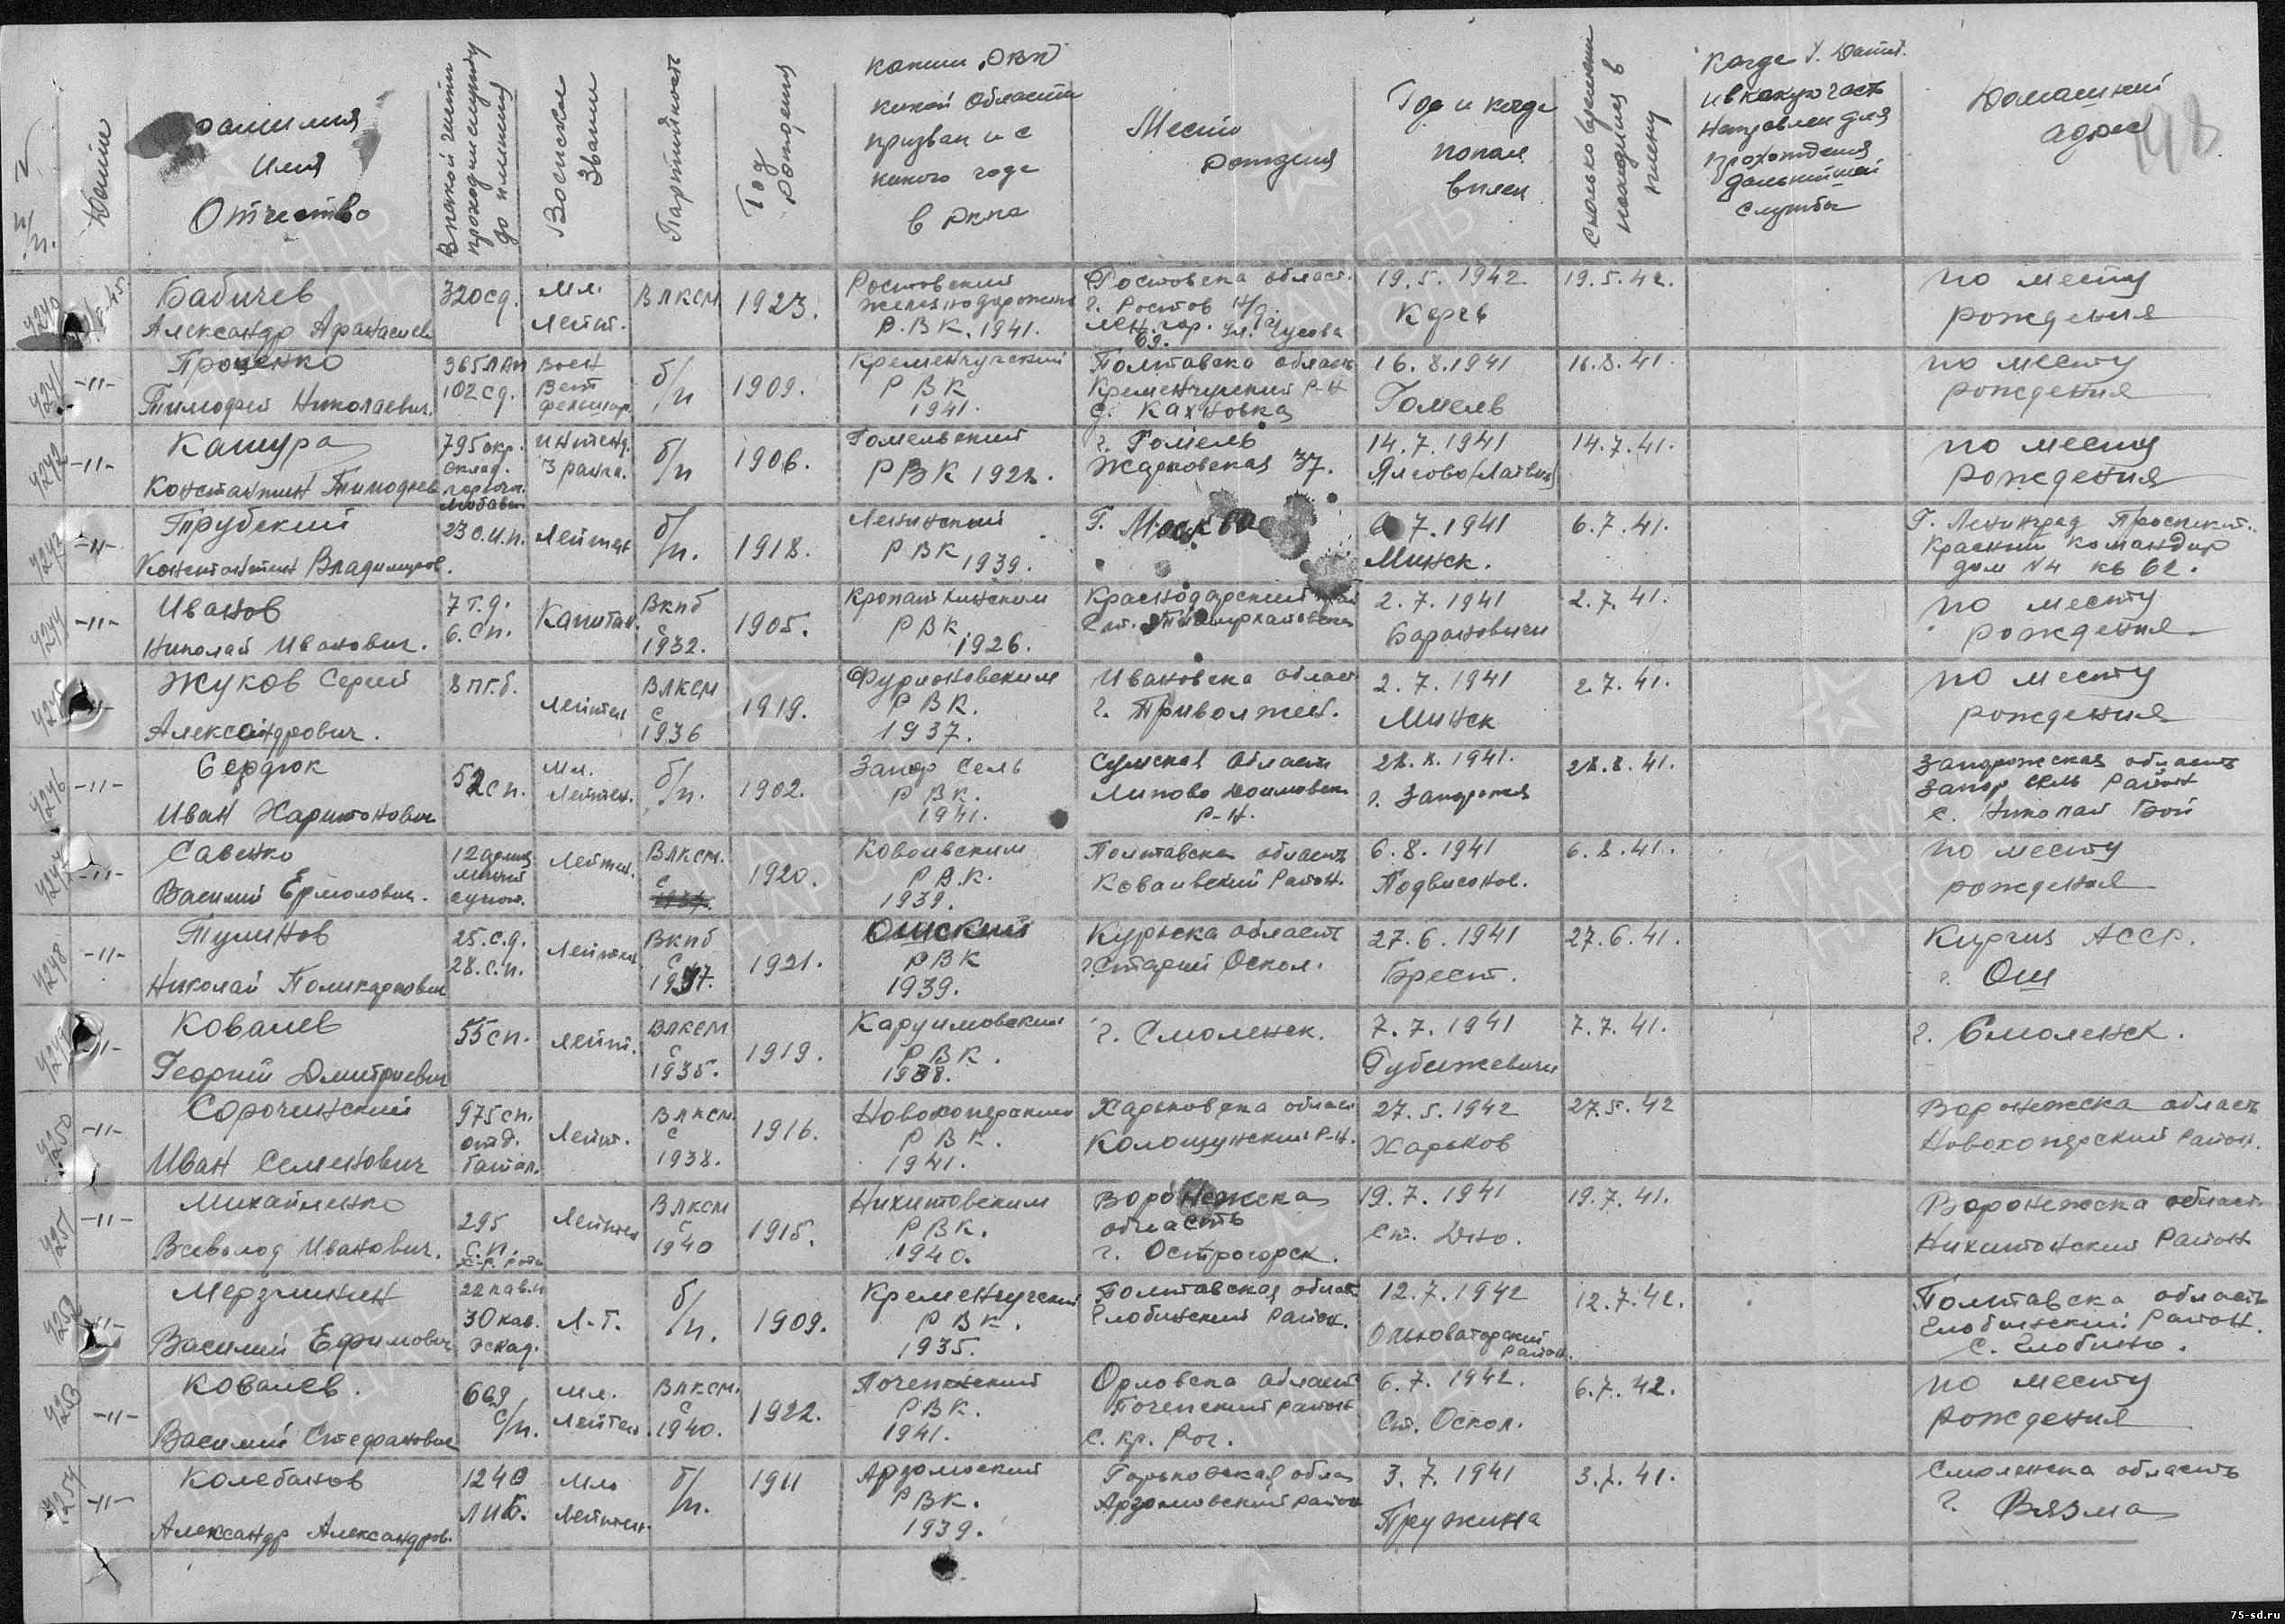 № п/п.
Дата
Фамилия
Имя
Отчество
В какой части
проходил службу
до пленения
Воинское
Звание
Партийность
Год
рождения
Каким РВК
какой Области
призван и с
какого года
в РККА
Место
рождения
Где и когда
попал
в плен
Сколько времени
находился в
плену
Когда
и в какую часть
Направлен для
прохождения
дальнейшей
службы
Домашний
адрес
98
4240
Бабичев
Александр Афанасиев
320сд.
Мл.
Лейт.
ВЛКСМ
1923.
Ростовский
железнодорожный
Р.В.К. 1941.
Ростовска област.
г. Ростов н/д.
69.
19.5.1942
Керчь
19.5.42.
по месту
рождения
4241
-11-
Проценко
Тимофей Николаевич.
102сд.
Воен
Вет
фельдшер.
б/п
1909.
Кременчугский
РВК
1941.
Полтавска область
Кременчугский р-н
с. Кахновка
16.8.1941
Гомель
16.8.41.
по месту
рождения
4242
-11-
Кашура
Константин Тимофеев
795 окр.
склад.
Интенд.
3 ранга.
б/п
1906.
Гомельский
РВК 192
г. Гомель
Жарковская 37.
14.7.1941
(Латвия)
14.7.41.
по месту
рождения
4243
-11-
Трубский
Константин Владимиров.
23 о.и.п.
Лейтен
б/п.
1918.
Ленинский
РВК
1939.
Г. Москва
7.1941
Минск.
6.7.41.
Г. Ленинград Проспект.
Красный Командир
дом №4 кв 62.
4244
-11-
Иванов
Николай Иванович.
7 т.д.
6.сп.
Капитан.
Вкпб
с
1932.
1905.
Кропаткинским
РВК
1926.
Краснодарский край
2.7.1941
Барановичи
2.7.41.
по месту
рождения
4245
-11-
Жуков Сергей
Александрович.
8 пт.б.
Лейтен
ВЛКСМ
с
1936
1919.
Фурмановским
РВК.
1937.
Ивановска област
г. Приволжск.
2.7.1941
Минск
2.7.41.
по месту
рождения
4246
-11-
Сердюк
Иван Харитонович
52сп.
Мл.
Лейтен.
б/п.
1902.
Запор Сель
РВК.
1941.
Сумская Област
Липово Долиновск
р-н.
28.8.1941.
г. Запорожья
28.8.41.
Запорожская область
Запор сель Район
с. Николай Бой
4247
-11-
Савенко
Василий Ермолович.
12 армия
Лейтен.
ВЛКСМ.
с
1920.
РВК.
1939.
Полтавска область
Район.
6.8.1941
Подвисокое.
6.8.41.
по месту
рождения
4248
-11-
Тулинов
Николай Поликарпович
25.с.д.
28.с.п.
Лейтен
Вкпб
с
1921.
Ошский
РВК
1939.
Курска область
г. Старый Оскол.
27.6.1941
Брест.
27.6.41.
Киргиз АССР.
г. Ош
4249
-11-
Ковалев
Георгий Дмитриевич
55сп.
Лейт.
ВЛКСМ
с
1935.
1919.
РВК.
1938.
г. Смоленск.
7.7.1941
Губежевичи
7.7.41.
г. Смоленск.
4250
-11-
Сорочинский
Иван Семенович
975сп.
отд.
батал.
Лейт.
ВЛКСМ
с
1938.
1916.
Новохоперским
РВК.
1941.
Харьковска област
27.5.1942
Харьков
27.5.42
Воронежска область
Новохоперский Район.
4251
-11-
Михайленко
Всеволод Иванович.
295
с.п.
Лейтен
ВЛКСМ
с
1940
1915.
Никитовским
РВК.
1940.
Воронежска
область
г. Острогорск.
19.7.1941
Ст. Дно.
19.7.41.
Воронежска област.
Никитовский Район
4252
-11-
Мерзликин
Василий Ефимович
30 кав.
эскад.
Л-т.
б/п.
1909.
Кременчугский
РВК.
1935.
Полтавская област
Глобинский Район.
12.7.1942
Ольховатский
Район.
12.7.42.
Полтавска область
Глобинский Район.
с. Глобино.
4253
-11-
Ковалев.
Василий Стефанович
669
с/п.
Мл.
Лейтен.
ВЛКСМ.
с
1940.
1922.
Почепский
РВК.
1941.
Орловска област
Почепский район
с. Кр. Рог.
6.7.1942.
Ст. Оскол.
6.7.42.
по месту
рождения
4254
-11-
Колебанов
Александр Александров.
Мл.
Лейтен.
б/п.
1911
Арзамаский
РВК.
1939.
Горьковская облас
Арзамовский район
3.7.1941
Пружина
3.7.41.
Смоленска область
г. Вязма
75-sd.ru